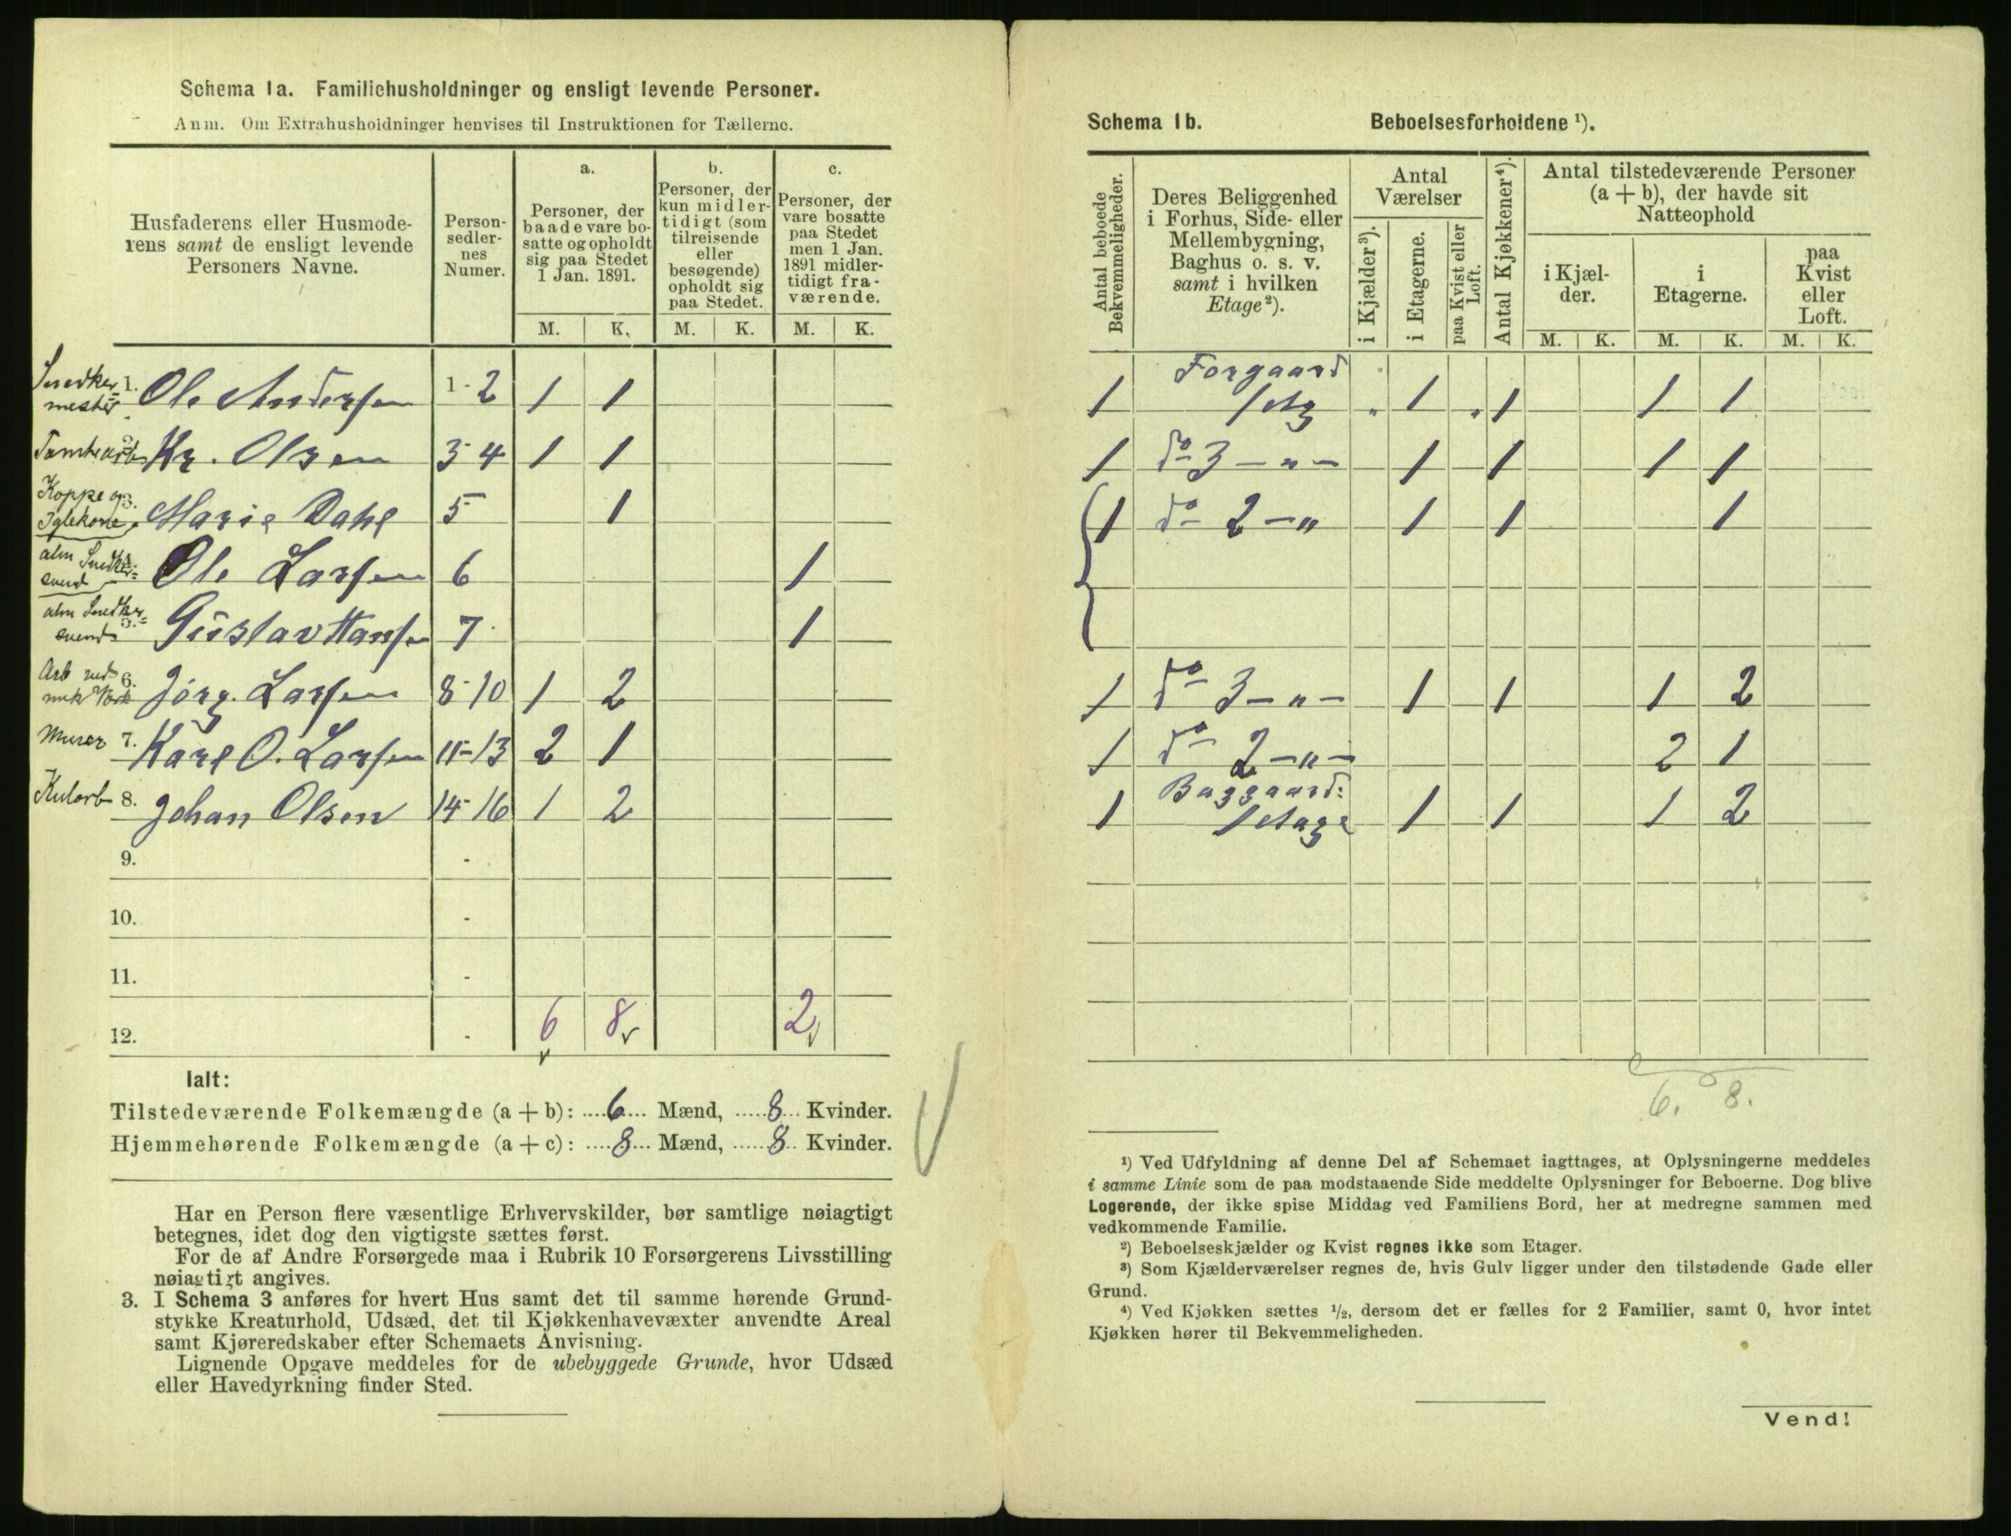 Schema 1a. Familiehusholdninger og ensligt levende Personer.
Anm. Om Extrahusholdninger henvises til Instruktionen for Tællerne.
Husfaderens eller Husmode-
rens samt de ensligt levende
Personers Navne.
Person-
sedler-
nes
Numer.
a.
Personer, der
baade vare bo-
satte og opholdt
sig paa Stedet
1 Jan. 1891.
b.
Personer, der
kun midler-
tidigt (som
tilreisende
eller
besøgende)
opholdt sig
paa Stedet.
c.
Personer, der
vare bosatte
paa Stedet
men 1 Jan.
1891 midler-
tidigt fra-
værende.
M. K. M. K. M. K.
Snedker=
mester 1. Ole Andersen 1-2 1 1
2. Kr. Olsen 3-4 1 1
Koppe og
Iglekone 3. Marie Dahl 5 1
alm Snedker=
svend 4. Ole Larsen 6 1
alm Snedker=
svend 5. Gustav Hansen 7 1
Arb ved
mek Værk 6. Jørg. Larsen 8-10 1 2
Murer 7. Karl O. Larsen 11-13 2 1
Kularb 8. Johan Olsen 14-16 1 2
9. -
10. -
11. -
12. - 6 8 2
Ialt:
Tilstedeværende Folkemængde (a + b): 6 Mænd, 8 Kvinder.
Hjemmehørende Folkemængde (a + c): 8 Mænd, 8 Kvinder.
Har en Person flere væsentlige Erhvervskilder, bør samtlige nøiagtigt
betegnes, idet dog den vigtigste sættes først.
For de af Andre Forsørgede maa i Rubrik 10 Forsørgerens Livsstilling
nøiagtigt angives.
3. I Schema 3 anføres for hvert Hus samt det til samme hørende Grund-
stykke Kreaturhold, Udsæd, det til Kjøkkenhavevæxter anvendte Areal
samt Kjøreredskaber efter Schemaets Anvisning.
Lignende Opgave meddeles for de ubebyggede Grunde, hvor Udsæd
eller Havedyrkning finder Sted.
Schema 1b. Beboelsesforholdene ¹).
Antal beboede
Bekvemmeligheder.
Deres Beliggenhed
i Forhus, Side- eller
Mellembygning,
Baghus o. s. v.
samt i hvilken
Etage²).
Antal
Værelser
i Kjælder³).
i Etagerne.
paa Kvist eller
Loft.
Antal Kjøkkener⁴).
Antal tilstedeværende Personer
(a + b), der havde sit
Natteophold
i Kjæl-
der.
i
Etagerne.
paa
Kvist
eller
Loft.
M. K. M. K. M. K.
Forgaard
1 1 etg " 1 " 1 1 1
1 do 3 — " — 1 1 1 1
1 do 2 — " 1 1 1
1 do 3 — " — 1 1 1 2
1 do 2 — " — 2 1
Baggaard:
1 1 etage 1 1 1 2
6. 8.
¹) Ved Udfyldning af denne Del af Schemaet iagttages, at Oplysningerne meddeles
i samme Linie som de paa modstaaende Side meddelte Oplysninger for Beboerne. Dog blive
Logerende, der ikke spise Middag ved Familiens Bord, her at medregne sammen med
vedkommende Familie.
²) Beboelseskjælder og Kvist regnes ikke som Etager.
³) Som Kjælderværelser regnes de, hvis Gulv ligger under den tilstødende Gade eller
Grund.
⁴) Ved Kjøkken sættes ½, dersom det er fælles for 2 Familier, samt 0, hvor intet
Kjøkken hører til Bekvemmeligheden.
Vend!